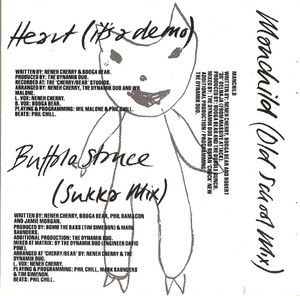 Heart (it's a demo)
WRITTEN BY: NENEH CHERRY & BOOGA BEAR.
PRODUCED BY: THE DYNAMIK DUO.
RECORDED AT THE 'CHERRY/BEAR' STUDIOS.
ARRANGED BY: NENEH CHERRY, THE DYNAMIK DUO AND WIL
MALONE.
L. VOX: NENEH CHERRY.
B. VOX: BOOGA BEAR.
PLAYING & PROGRAMMING: WIL MALONE & PHIL CHILL.
BEATS: PHIL CHILL.
Buffalo stance
(sukka mix)
WRITTEN BY: NENEH CHERRY, BOOGA BEAR, PHIL RAMACON
AND JAMIE MORGAN.
PRODUCED BY: BOMB THE BASS (TIM SIMENON) & MARK
SAUNDERS.
ADDITIONAL PRODUCTION: THE DYNAMIK DUO.
MIXED AT MATRIX: BY THE DYNAMIK DUO (ENGINEER DAVID
PINE).
ARRANGED AT 'CHERRY/BEAR' BY: NENEH CHERRY & THE
DYNAMIK DUO.
L. VOX: NENEH CHERRY.
PLAYING & PROGRAMMING: PHIL CHILL, MARK SAUNDERS
& TIM SIMENON.
BEATS: PHIL CHILL.
Manchild (Old School Mix)
MANCHILD
WRITTEN BY: NENEH CHERRY, BOOGA BEAR AND ROBERT
THE DYNAMIK DUO.